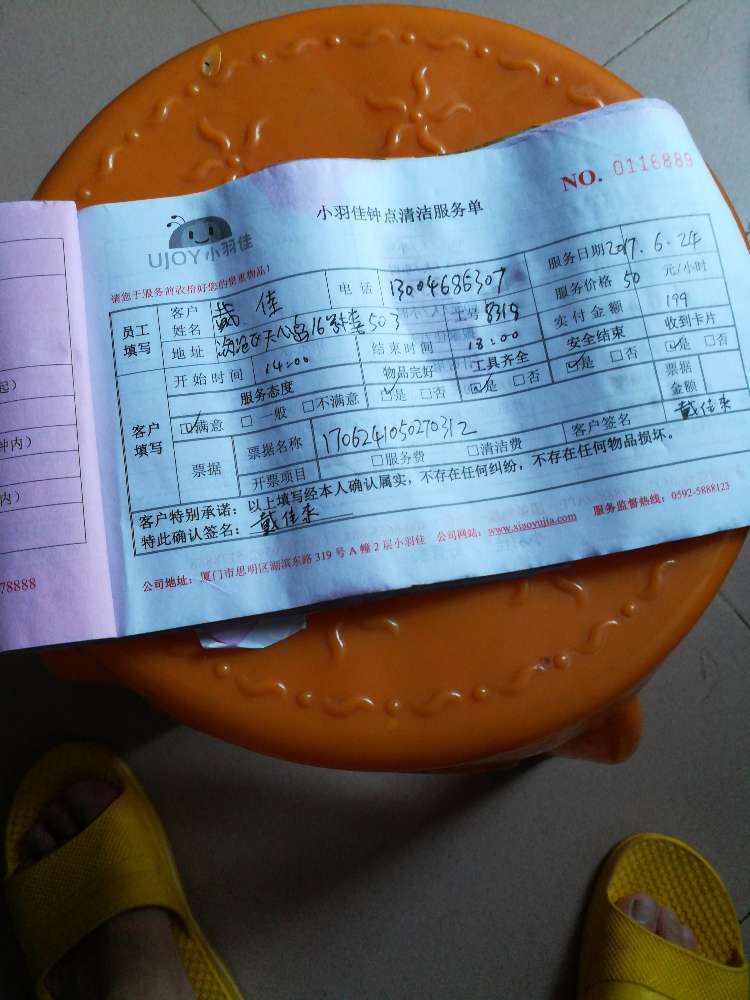 小羽佳钟点清洁服务单
NO. 0116889
UJOY小羽佳
请您于服务前收拾好您的贵重物品!
员工填写 客户姓名 戴佳 电话 13004686307 服务日期 2017.6.24
地址 16 503 工号 8319 服务价格 50 元/小时
客户填写 开始时间 14:00 结束时间 18:00 实付金额 199
服务态度 物品完好 工具齐全 安全结束 收到卡片
☑满意 □一般 □不满意 ☑是 □否 ☑是 □否 ☑是 □否 ☑是 □否
票据 票据名称 1706241050270312 票据金额
开票项目 □服务费 □清洁费 客户签名 戴佳来
客户特别承诺:以上填写经本人确认属实,不存在任何纠纷,不存在任何物品损坏。
特此确认签名:戴佳来
公司地址:厦门市思明区湖滨东路319号A幢2层小羽佳 公司网站:www.xiaoyujia.com 服务监督热线:0592-5888123
起)
钟内)
内)
78888